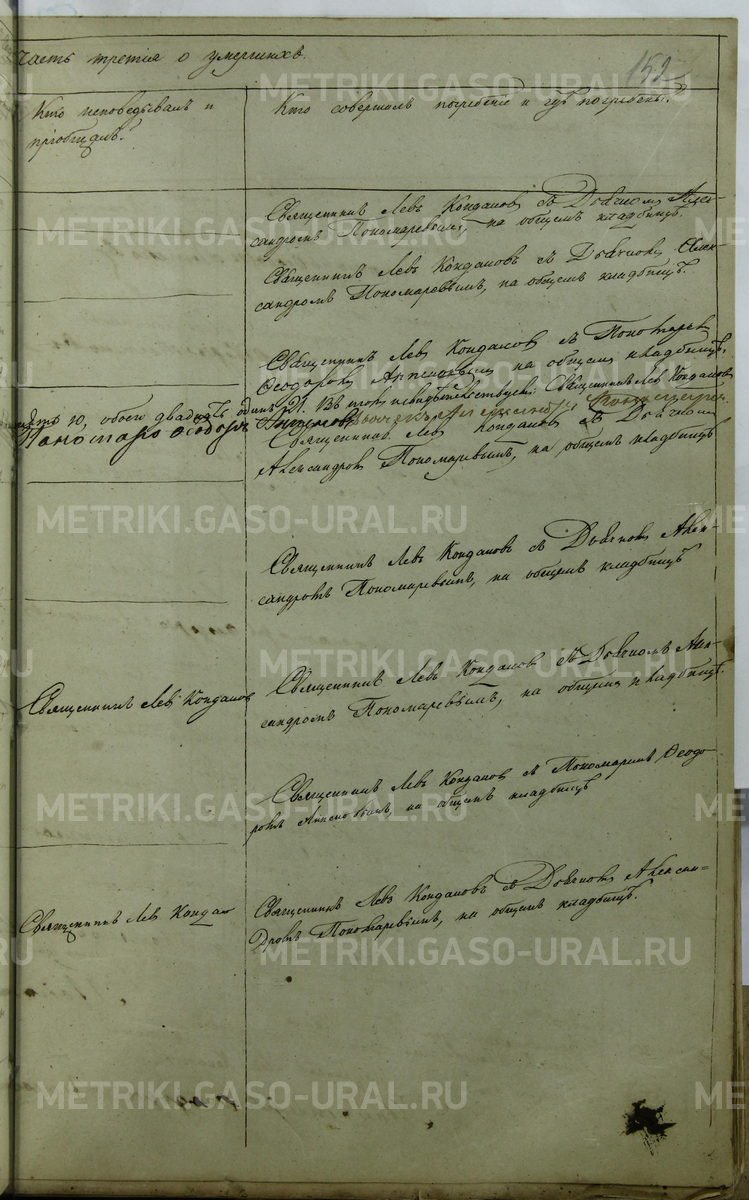 Часть третія о умершихъ.
152
Кто исповедывалъ и
пріобщалъ?
Кто совершалъ погребеніе и гдѣ погребены?
Священникъ Левъ Кондаковъ съ Дьячкомъ Алек-
сандромъ Пономаревымъ, на общемъ кладбищѣ.
Священникъ Левъ Кондаковъ съ Дьячкомъ Алек-
сандромъ Пономаревымъ, на общемъ кладбищѣ.
Священникъ Левъ Кондаковъ съ Пономаремъ
Ѳеодоромъ на общемъ кладбищѣ.
обоего двадцать одинъ 21. Въ томъ свидѣтельствуетъ Священникъ Левъ Кондаковъ
Пономарь Ѳеодоръ
Священникъ Левъ Кондаковъ съ Дьячкомъ
Александромъ Пономаревымъ, на общемъ кладбищѣ
Священникъ Левъ Кондаковъ съ Дьячкомъ Алек-
сандромъ Пономаревымъ, на общемъ кладбищѣ
Священникъ Левъ Кондаковъ
Священникъ Левъ Кондаковъ съ Дьячкомъ Алек-
сандромъ Пономаревымъ, на общемъ кладбищѣ.
Священникъ Левъ Кондаковъ съ Пономаремъ Ѳеодо-
ромъ на общемъ кладбищѣ
Священникъ Левъ Кондак
Священникъ Левъ Кондаковъ съ Дьячкомъ Алексан-
дромъ Пономаревымъ, на общемъ кладбищѣ.
METRIKI.GASO-URAL.RU